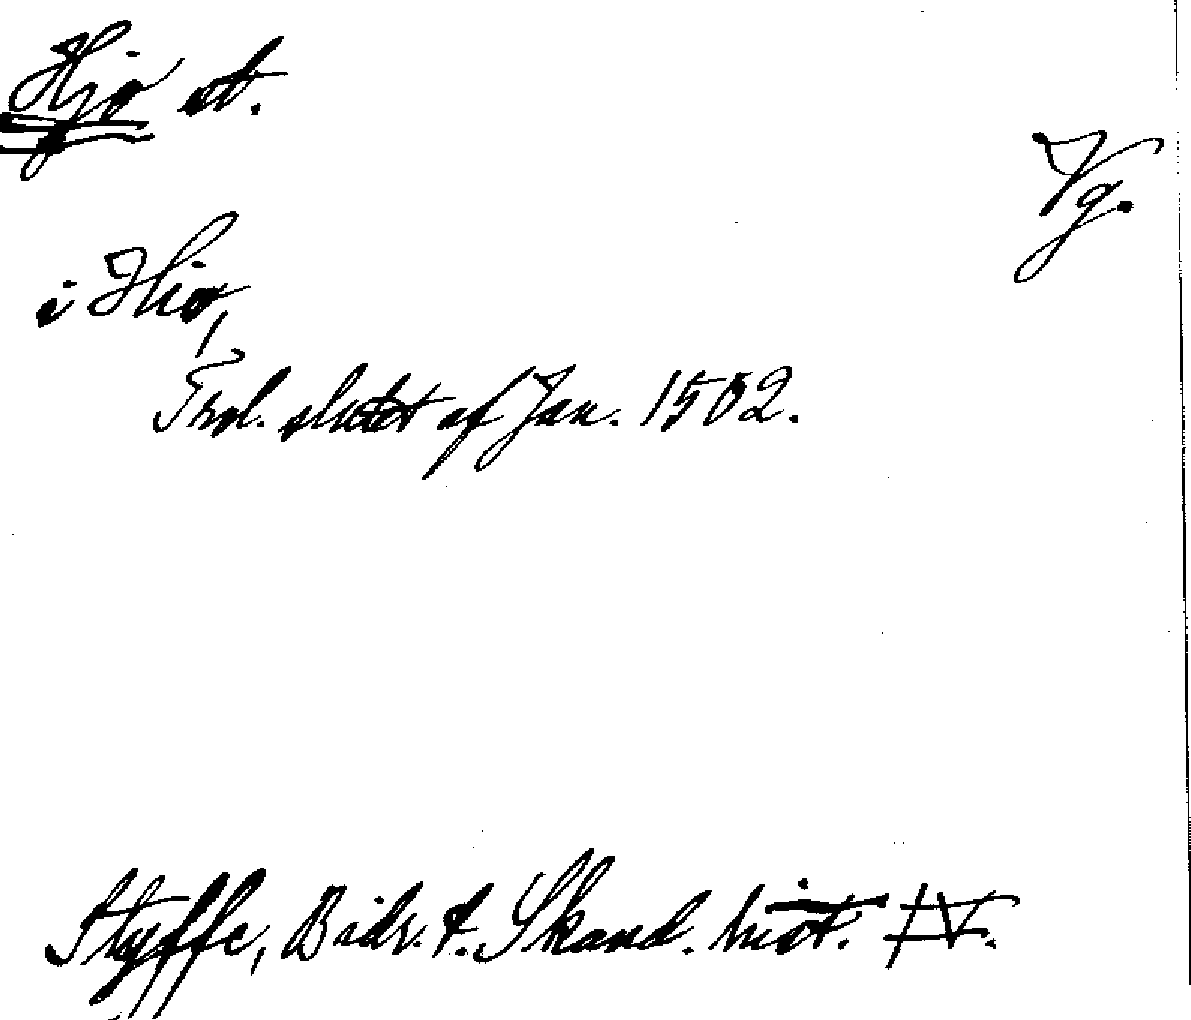 Hjo st.
Vg.
i Hio,
Trol. slutet af Jan. 1502.
Styffe, Bidr. t. Skand. hist. IV.